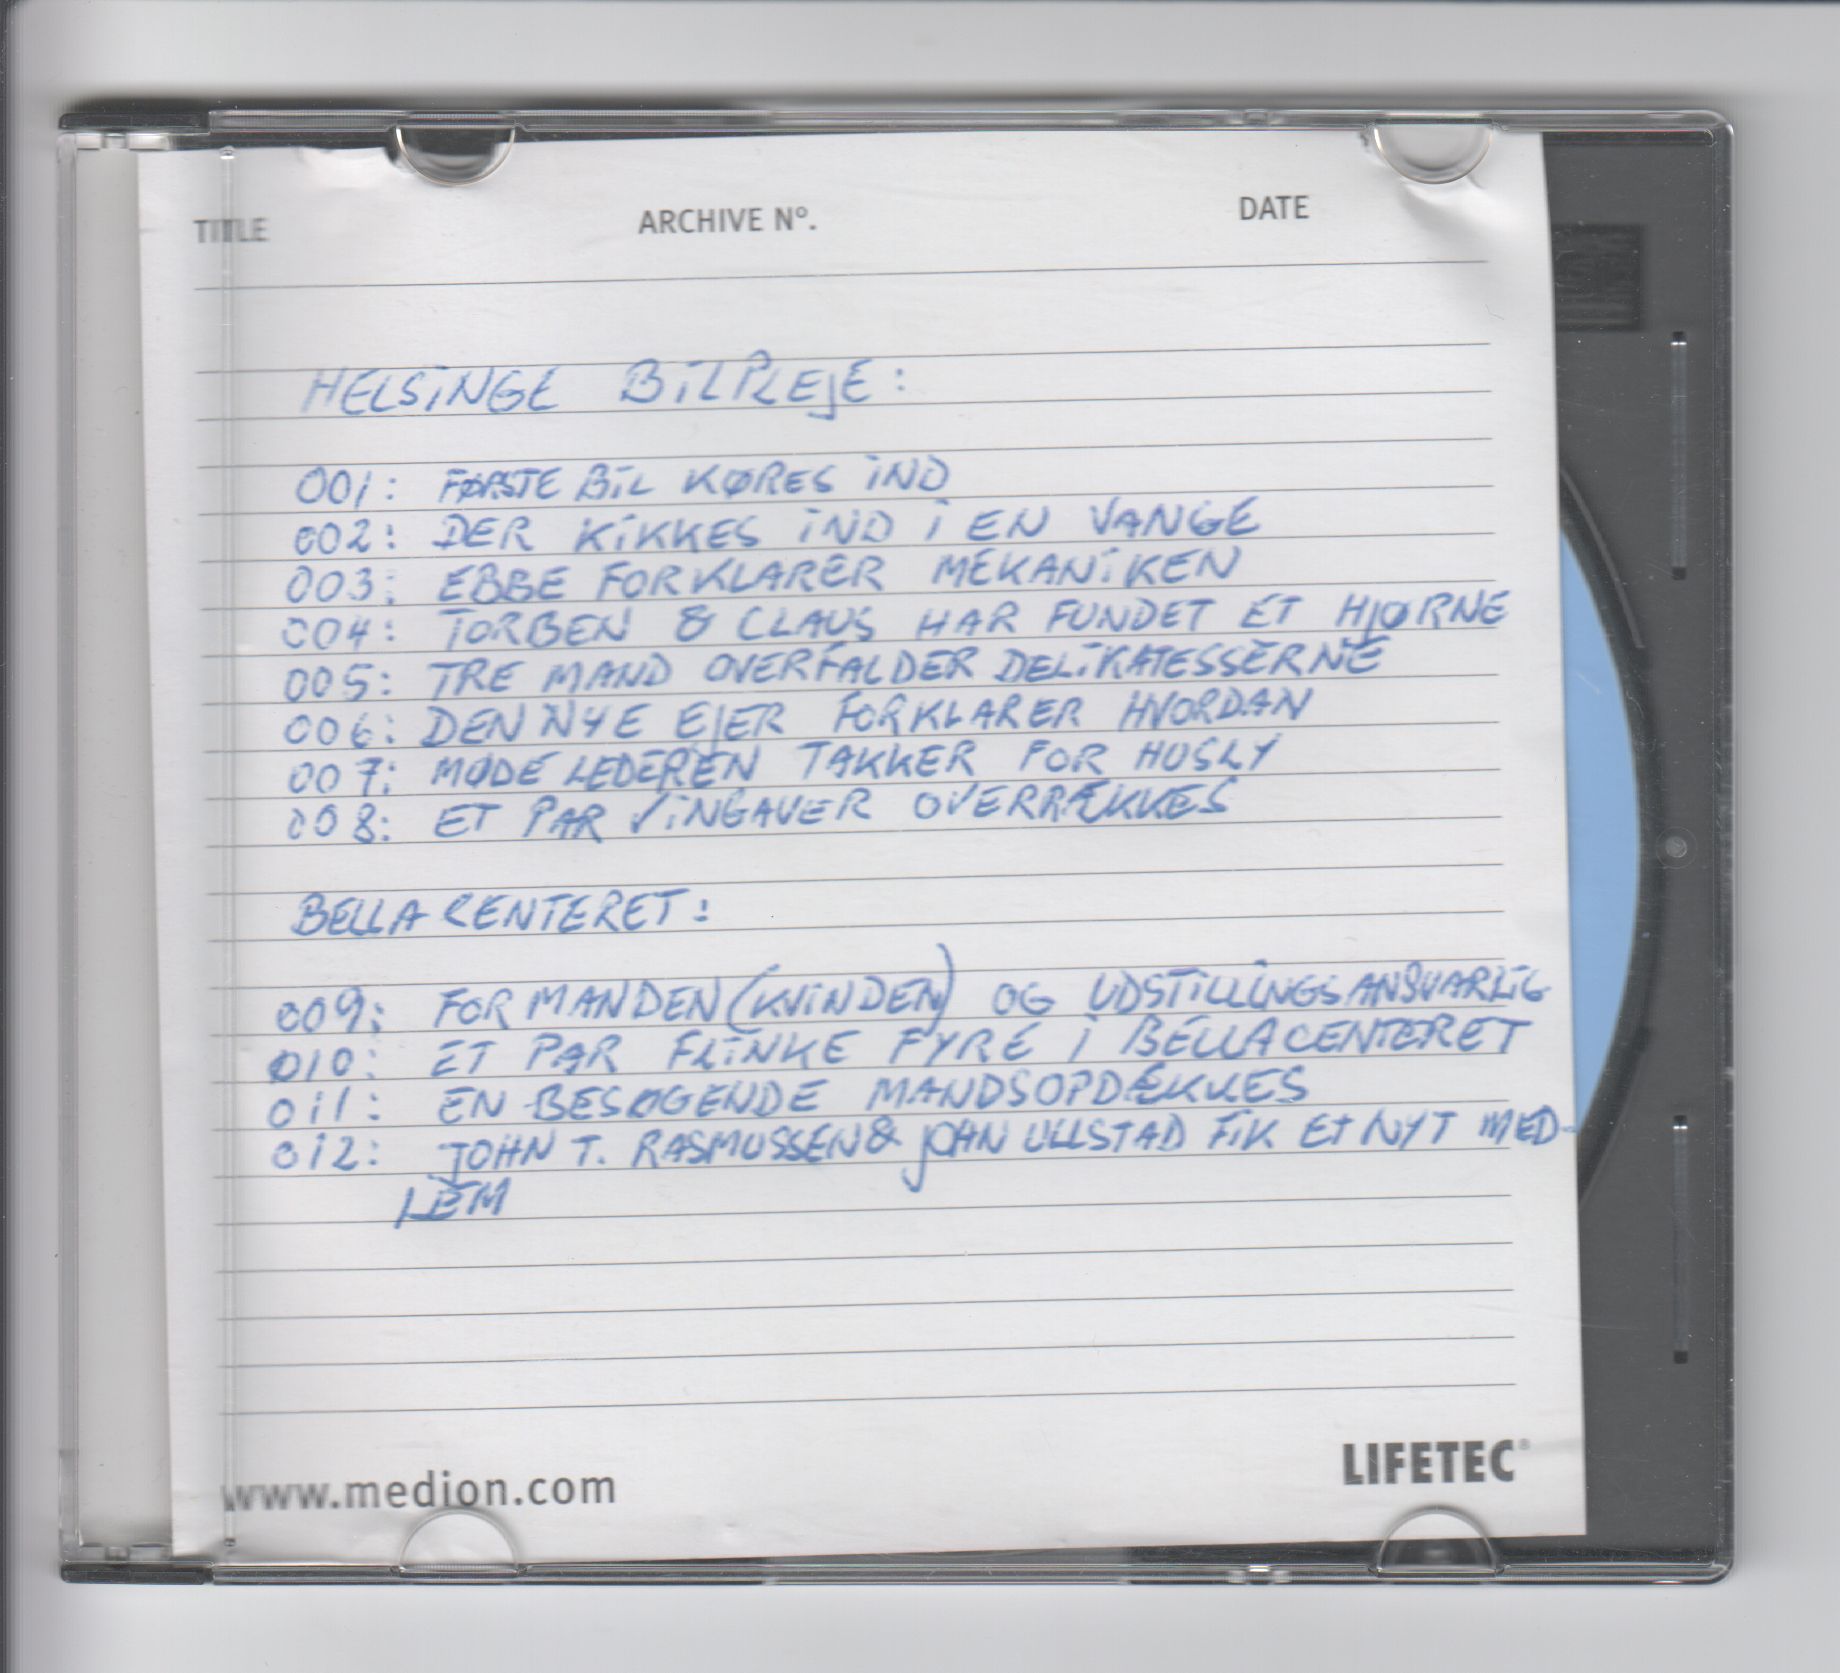 TITLE ARCHIVE N°. DATE
HELSINGE BILPLEJE:
001: FØRSTE BIL KØRES IND
002: DER KIKKES IND I EN VANGE
003: EBBE FORKLARER MEKANIKEN
004: TORBEN & CLAUS HAR FUNDET ET HJØRNE
005: TRE MAND OVERFALDER DELIKATESSERNE
006: DEN NYE EJER FORKLARER HVORDAN
007: MØDELEDEREN TAKKER FOR HUSLY
008: ET PAR VINGAVER OVERRÆKKES
BELLA CENTERET:
009: FORMANDEN (KVINDEN) OG UDSTILLINGSANSVARLIG
010: ET PAR FLINKE FYRE I BELLACENTERET
011: EN BESØGENDE MANDSOPDÆKKES
012: JOHN T. RASMUSSEN & JOHN ULLSTAD FIK ET NYT MED-
LEM
www.medion.com LIFETEC®